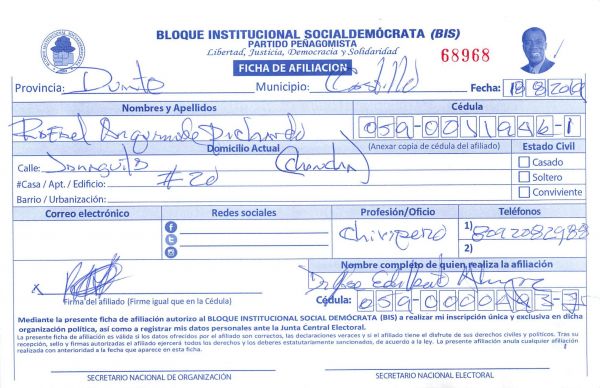 BLOQUE INSTITUCIONAL SOCIALDEMÓCRATA (BIS)
PARTIDO PEÑAGOMISTA
Libertad, Justicia, Democracia y Solidaridad
68968
FICHA DE AFILIACION
Provincia: Duarte Municipio: Castillo Fecha:
Nombres y Apellidos Cédula
Rafael Pichardo 059-0011946-1
Domicilio Actual (Anexar copia de cédula del afiliado) Estado Civil
Calle: Casado
#Casa / Apt. / Edificio: #20 Soltero
Barrio / Urbanización: Conviviente
Correo electrónico Redes sociales Profesión/Oficio Teléfonos
Chiripero 1) 8092082988
2)
Nombre completo de quien realiza la afiliación
X
Firma del afiliado (Firme igual que en la Cédula) Cédula: 059-
Mediante la presente ficha de afiliación autorizo al BLOQUE INSTITUCIONAL SOCIAL DEMÓCRATA (BIS) a realizar mi inscripción única y exclusiva en dicha
organización política, así como a registrar mis datos personales ante la Junta Central Electoral.
La presente ficha de afiliación es válida si los datos ofrecidos por el afiliado son correctos, las declaraciones veraces y si el afiliado tiene el disfrute de sus derechos civiles y políticos. Tras su
recepción, sello y firmas autorizadas el afiliado ejercerá todos los derechos y los deberes estatutariamente sancionados, de acuerdo a la ley. La presente afiliación anula cualquier afiliación
realizada con anterioridad a la fecha que aparece en esta ficha.
SECRETARIO NACIONAL DE ORGANIZACIÓN SECRETARIO NACIONAL ELECTORAL